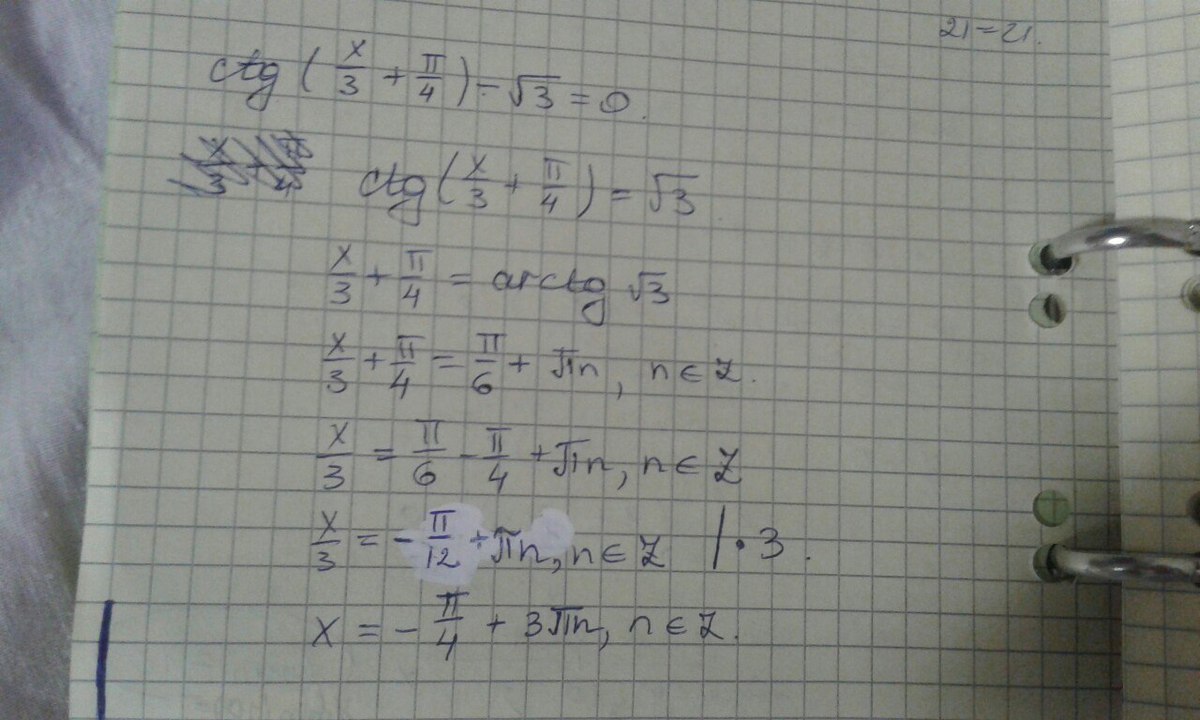 21=21.
ctg ( x/3 + π/4 ) - √3 = 0.
ctg ( x/3 + π/4 ) = √3
x/3 + π/4 = arcctg √3
x/3 + π/4 = π/6 + πn, n ∈ Z.
x/3 = π/6 - π/4 + πn, n ∈ Z
x/3 = - π/12 + πn, n ∈ Z | · 3.
x = - π/4 + 3πn, n ∈ Z.